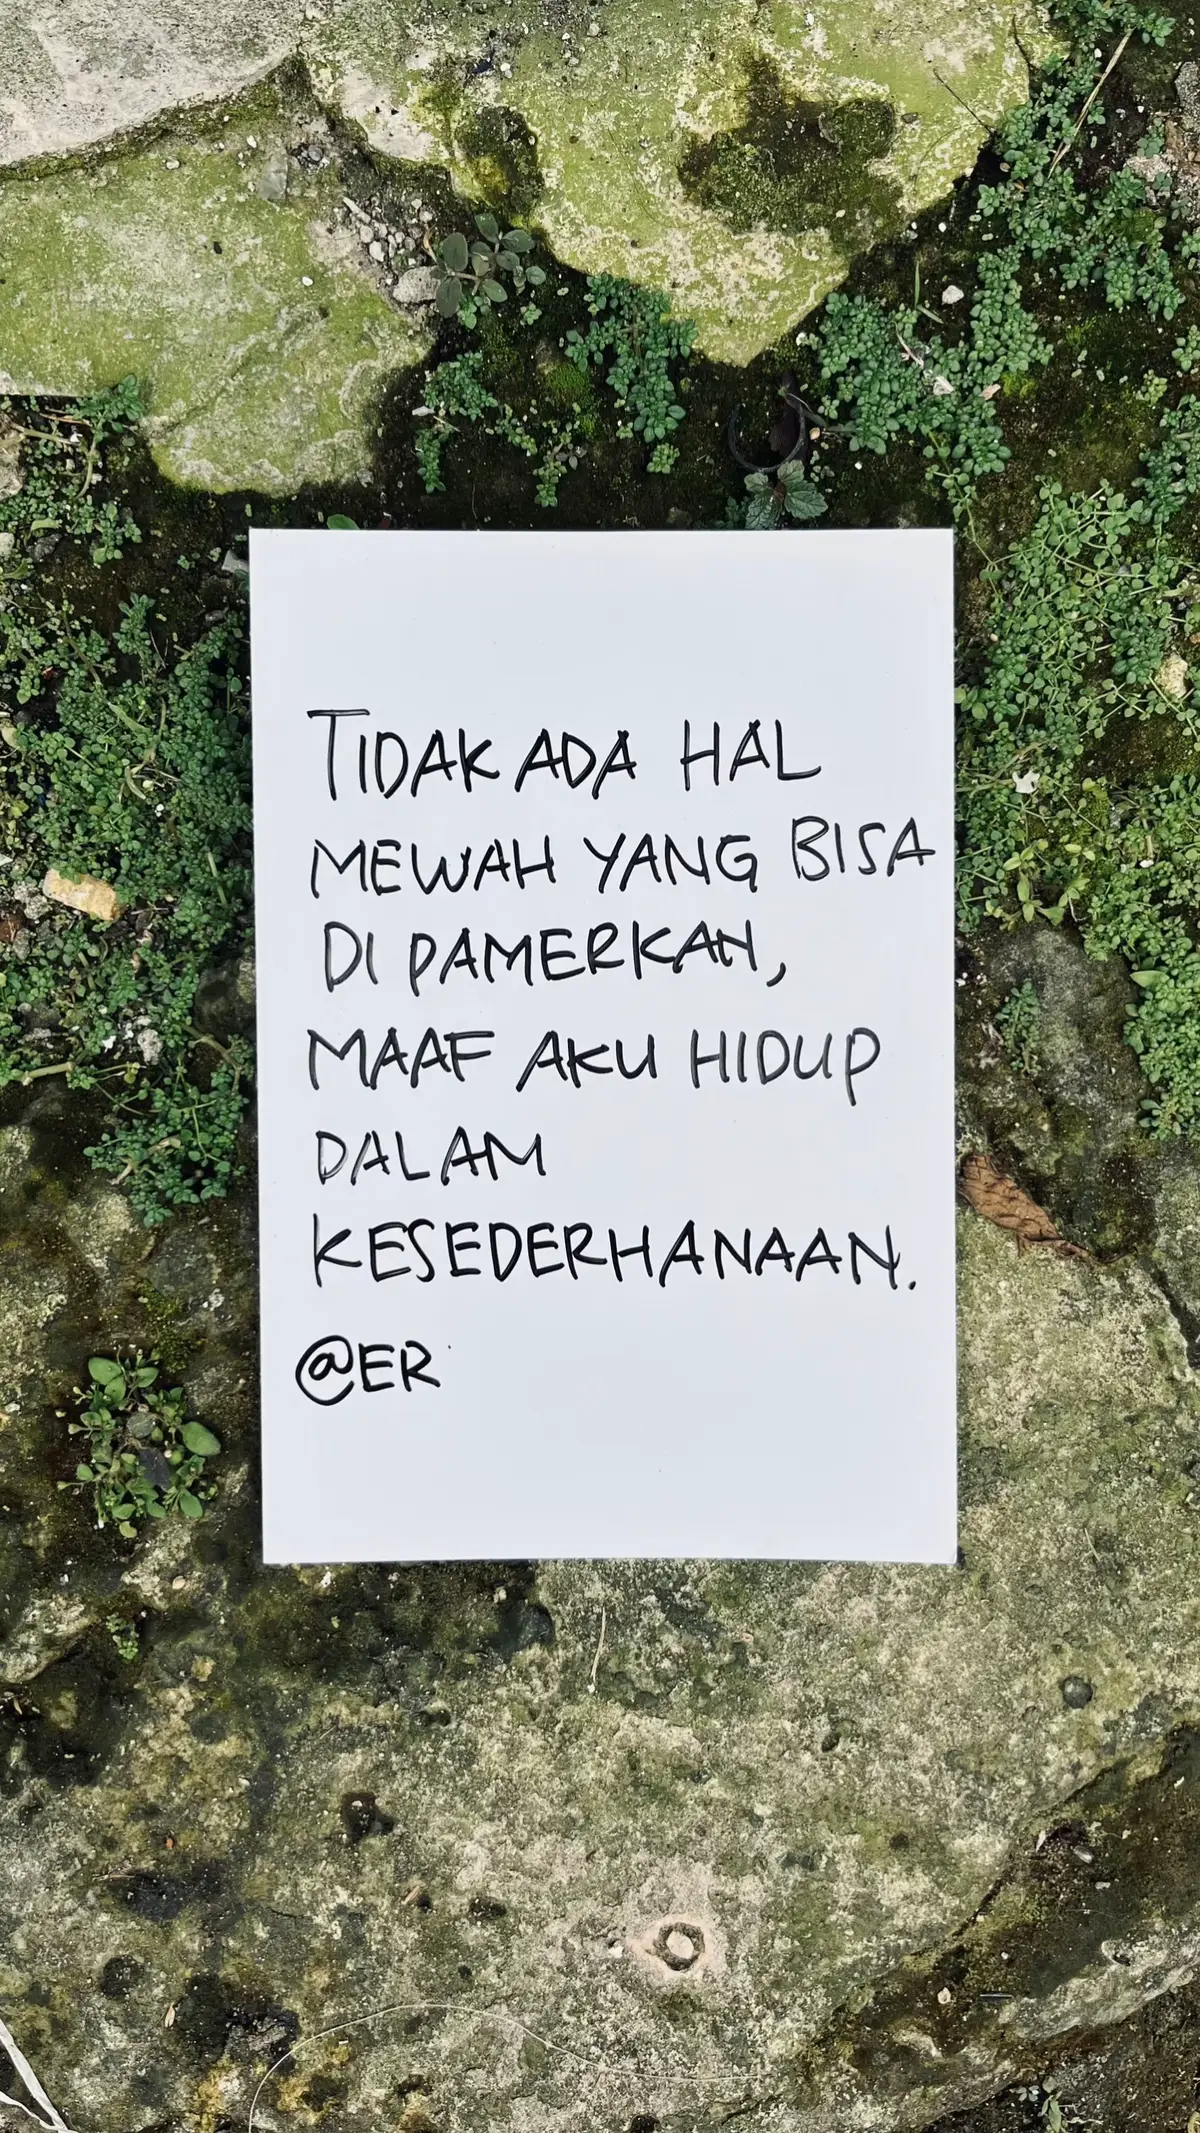 TIDAK ADA HAL
MEWAH YANG BISA
DI PAMERKAN,
MAAF AKU HIDUP
DALAM
KESEDERHANAAN.
@ER